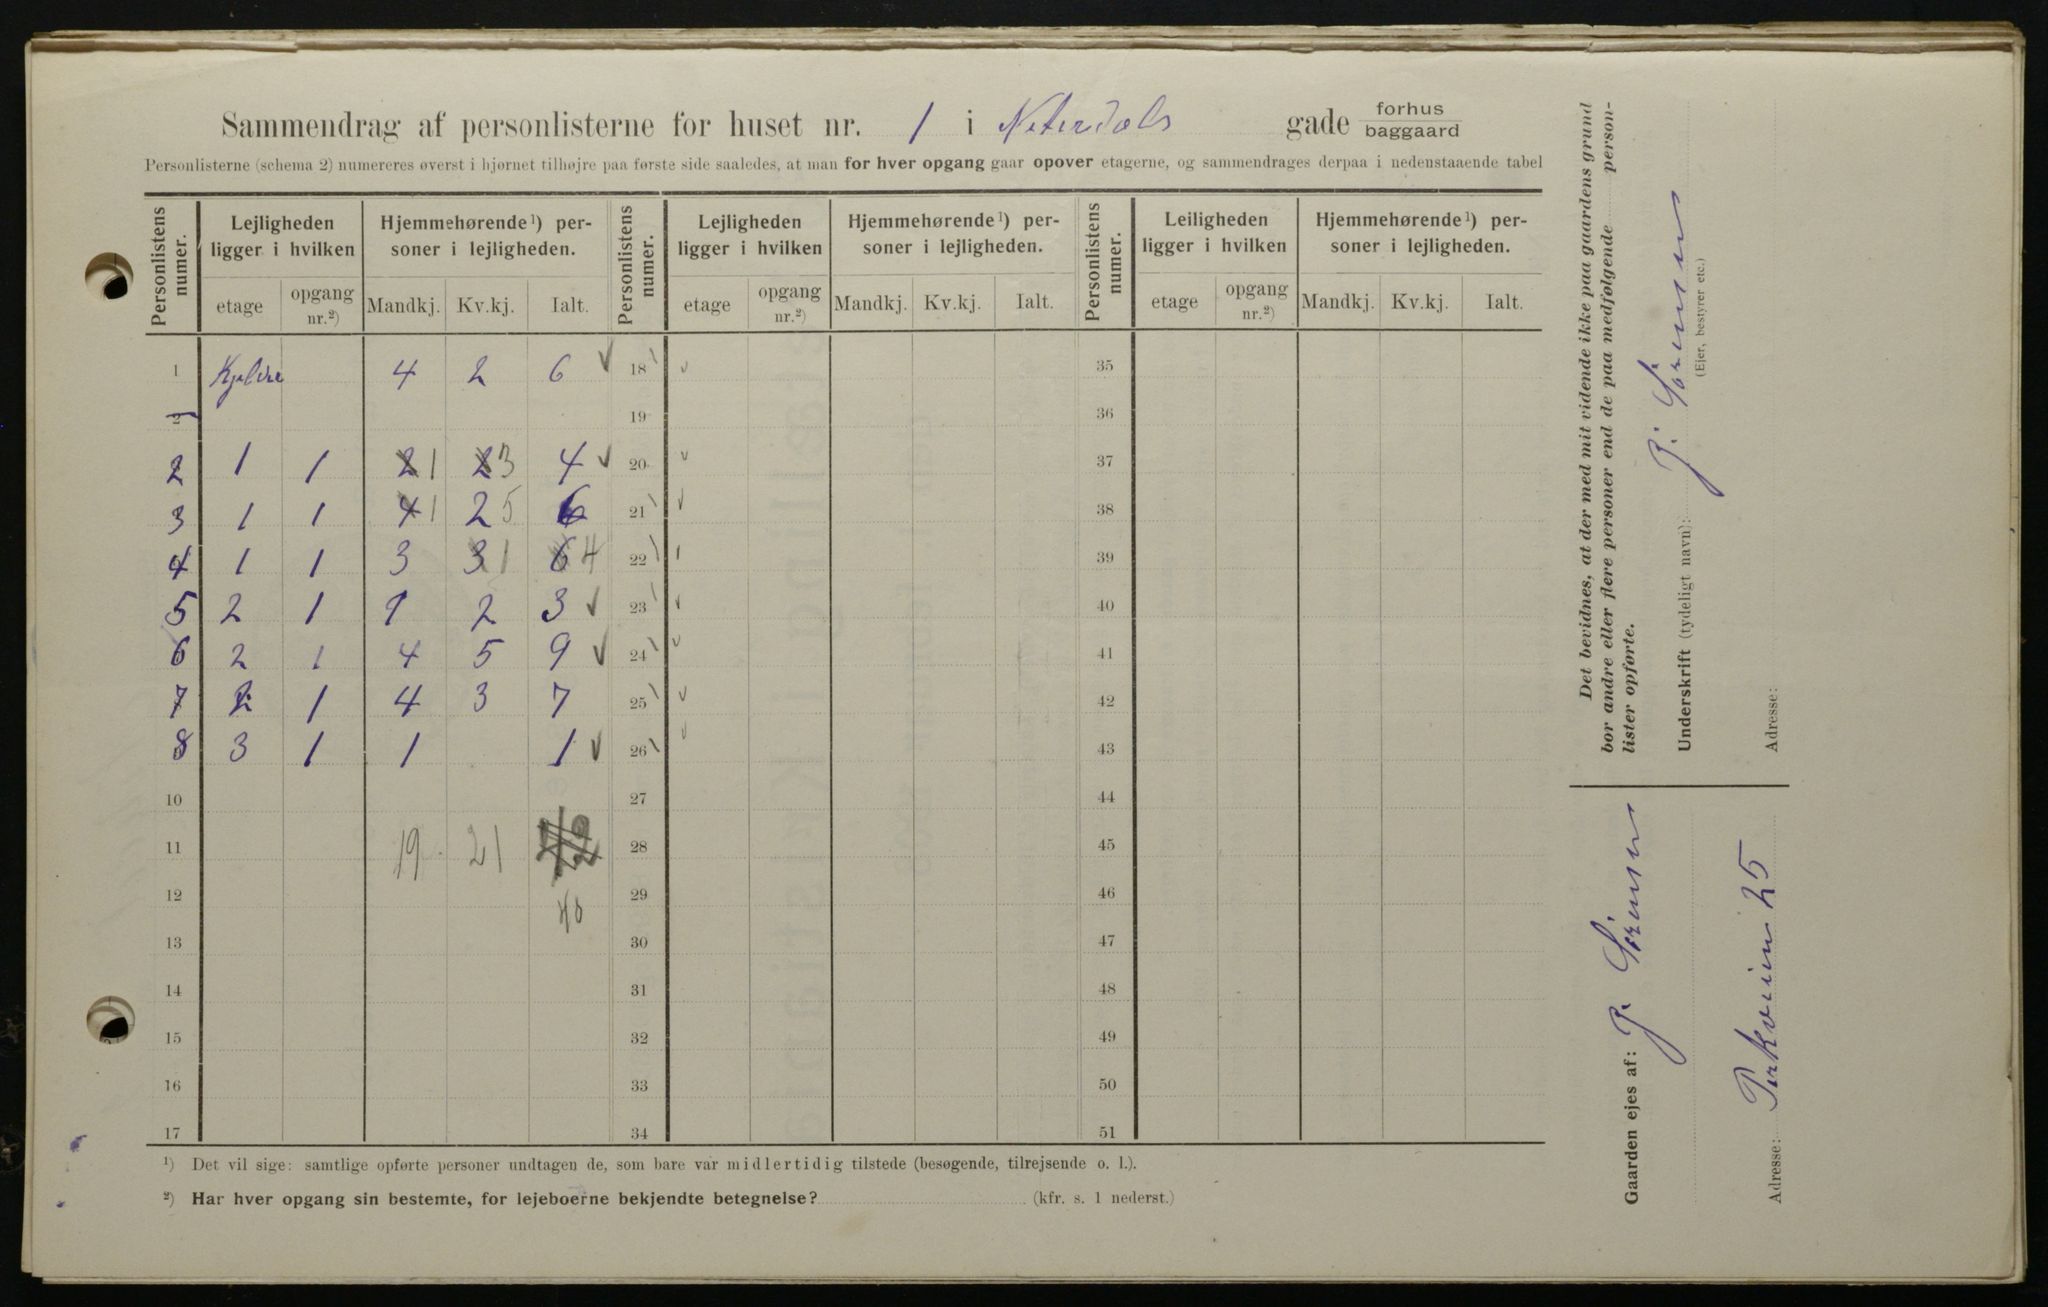 Sammendrag af personlisterne for huset nr. 1 i Nitedals gade forhus baggaard
Personlisterne (schema 2) numereres øverst i hjørnet tilhøjre paa første side saaledes, at man for hver opgang gaar opover etagerne, og sammendrages derpaa i nedenstaaende tabel
Personlistens numer. Lejligheden ligger i hvilken Hjemmehørende ¹) personer i lejligheden. Personlistens numer. Lejligheden ligger i hvilken Hjemmehørende ¹) personer i lejligheden. Personlistens numer. Leiligheden ligger i hvilken Hjemmehørende ¹) personer i lejligheden.
etage opgang nr.²) Mandkj. Kv.kj. Ialt. etage opgang nr.²) Mandkj. Kv.kj. Ialt. etage opgang nr.²) Mandkj. Kv.kj. Ialt.
1 Kjelder 4 2 6 18 35
2 19 36
2 1 1 2 1 2 3 4 20 37
3 1 1 4 1 2 5 6 21 38
4 1 1 3 3 1 6 4 22 39
5 2 1 1 2 3 23 40
6 2 1 4 5 9 24 41
7 2 1 4 3 7 25 42
8 3 1 1 1 26 43
10 27 44
11 19 21 28 45
12 40 29 46
13 30 47
14 31 48
15 32 49
16 33 50
17 34 51
¹) Det vil sige: samtlige opførte personer undtagen de, som bare var midlertidig tilstede (besøgende, tilrejsende o. l.).
²) Har hver opgang sin bestemte, for lejeboerne bekjendte betegnelse? (kfr. s. 1 nederst.)
Det bevidnes, at der med mit vidende ikke paa gaardens grund
bor andre eller flere personer end de paa medfølgende person-
lister opførte.
Underskrift (tydeligt navn): P. Sörensen
(Ejer, bestyrer etc.)
Adresse:
Gaarden ejes af: P. Sörensen
Adresse: Parkveien 25